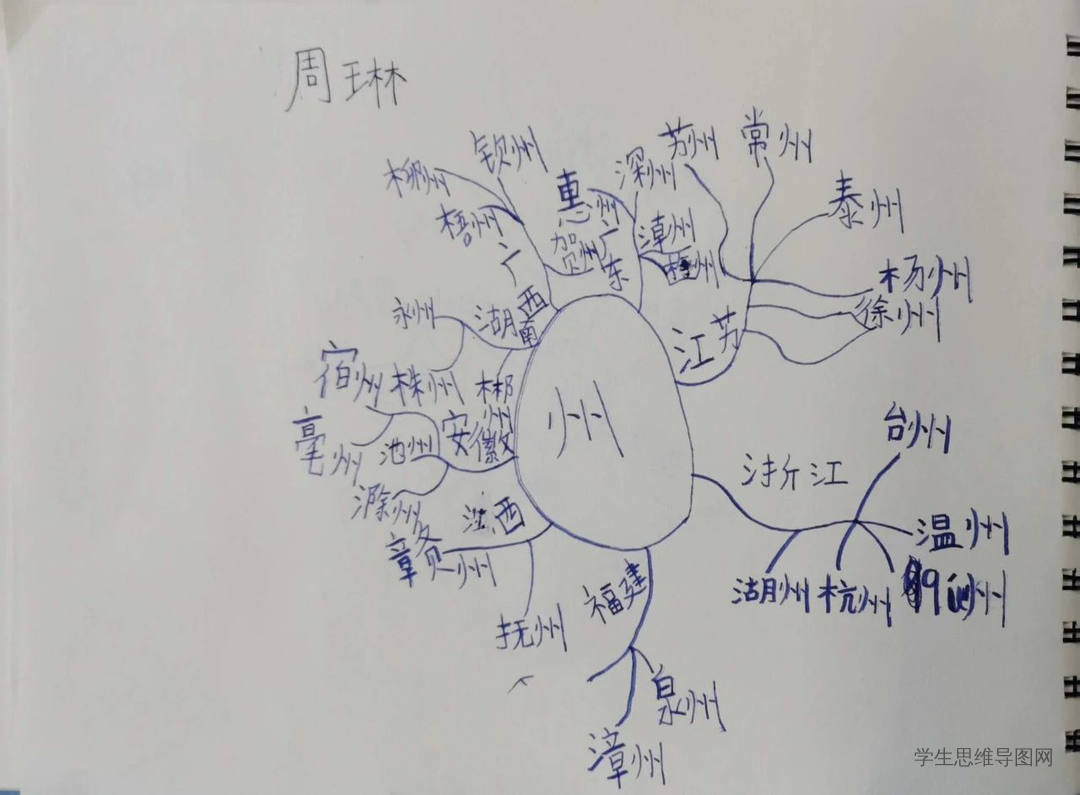 周琳
州
广西
钦州
柳州
梧州
贺州
广东
惠州
深州
漳州
江苏
苏州
常州
泰州
杨州
徐州
浙江
台州
温州
湖州
杭州
州
福建
泉州
漳州
江西
赣州
抚州
安徽
宿州
亳州
池州
滁州
湖南
永州
株州
郴州
学生思维导图网